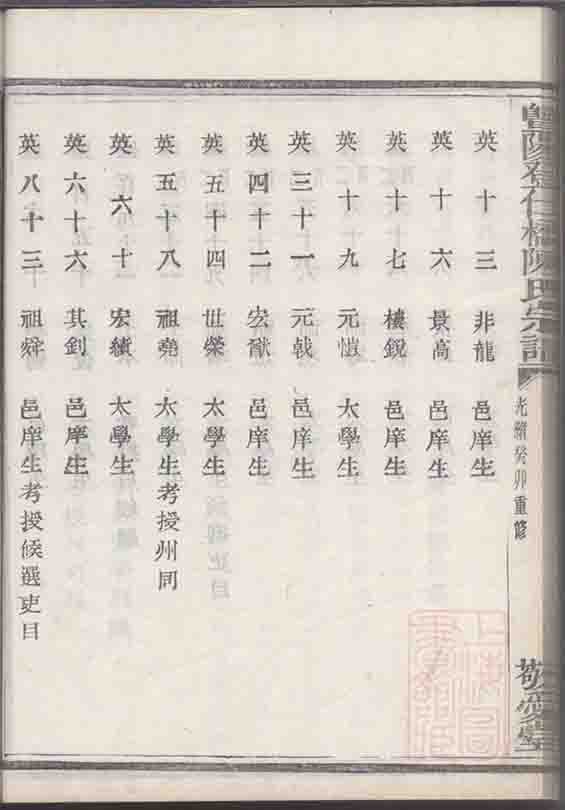 暨陽登仕橋陳氏宗譜
光緒癸卯重修
敬愛堂
英十三 非龍 邑庠生
英十六 景高 邑庠生
英十七 樓銳 邑庠生
英十九 元愷 太學生
英三十一 元戟 邑庠生
英四十二 宏猷 邑庠生
英五十四 世榮 太學生
英五十八 祖堯 太學生考授州同
英六十 宏績 太學生
英六十六 其釗 邑庠生
英八十三 祖舜 邑庠生考授候選吏目
上海圖書館藏